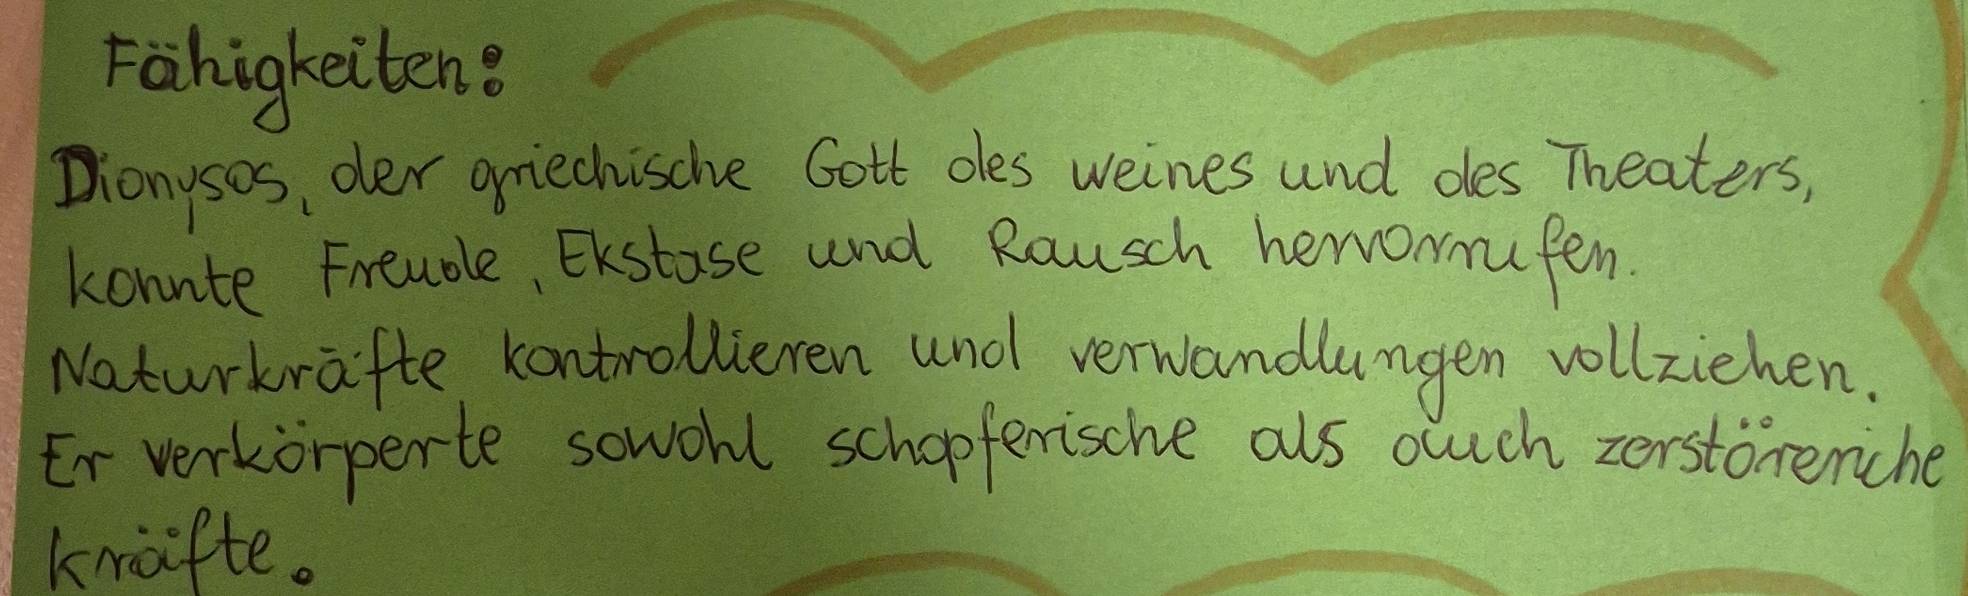 Fähigkeiten:
Dionysos, der griechische Gott des weines und des Theaters,
konnte Freude, Ekstase und Rausch hervorrufen.
Naturkräfte kontrollieren und verwandlungen vollziehen.
Er verkörperte sowohl schopferische als auch zerstöreriche
kräfte.